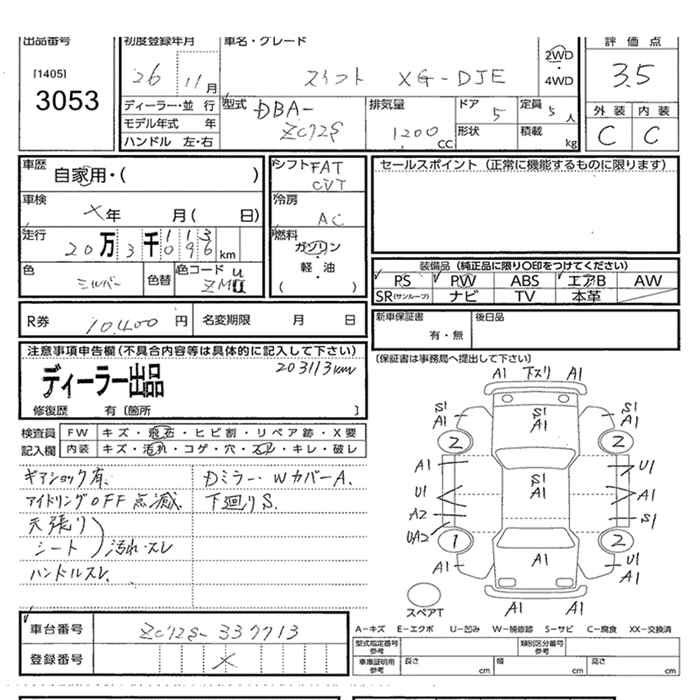 出品番号 初度登録年月 車名・グレード 2WD 評価点
[1405] 26 11月 スイフト XG-DJE 4WD 3.5
3053
ディーラー・並行 型式 DBA- 排気量 ドア 5 定員 5人 外装 内装
モデル年式 年 ZC72S 1200CC 形状 積載 kg C C
ハンドル 左・右
車歴 自家用・( ) シフト FAT セールスポイント (正常に機能するものに限ります)
CVT
車検 ×年 月( 日) 冷房 AC
走行 20万3千 km 燃料 ガソリン
軽・油
( )
色 シルバー 色替 色コード ZMU
装備品 (純正品に限り○印をつけてください)
PS PW ABS エアB AW
SR(サンルーフ) ナビ TV 本革
R券 10,400円 名変期限 月 日 新車保証書 有・無 後日品
(保証書は事務局へ提出して下さい)
注意事項申告欄(不具合内容等は具体的に記入して下さい)
203113km
ディーラー出品
修復歴 有〔箇所 〕
検査員 FW キズ・飛石・ヒビ割・リペア跡・X要
記入欄 内装 キズ・汚れ・コゲ・穴・スレ・キレ・破レ
ギアショック有、 Dミラー・WカバーA.
アイドリングOFF点滅、 下廻りS.
天張り
シート 汚れ・スレ
ハンドルスレ.
A1 下スリ A1
S1 A1 S1 A1 S1 A1
2 2
A1 U1
U1 S1 A1 A1
A2 S1
UA2 1 2
A1 A1 U1 A1
A1 A1
スペアT
車台番号 ZC72S-337713
登録番号 ×
A-キズ E-エクボ U-凹み W-補修跡 S-サビ C-腐食 XX-交換済
型式指定番号 参考 類別区分番号 参考
車庫証明用 参考 長さ cm 幅 cm 高さ cm